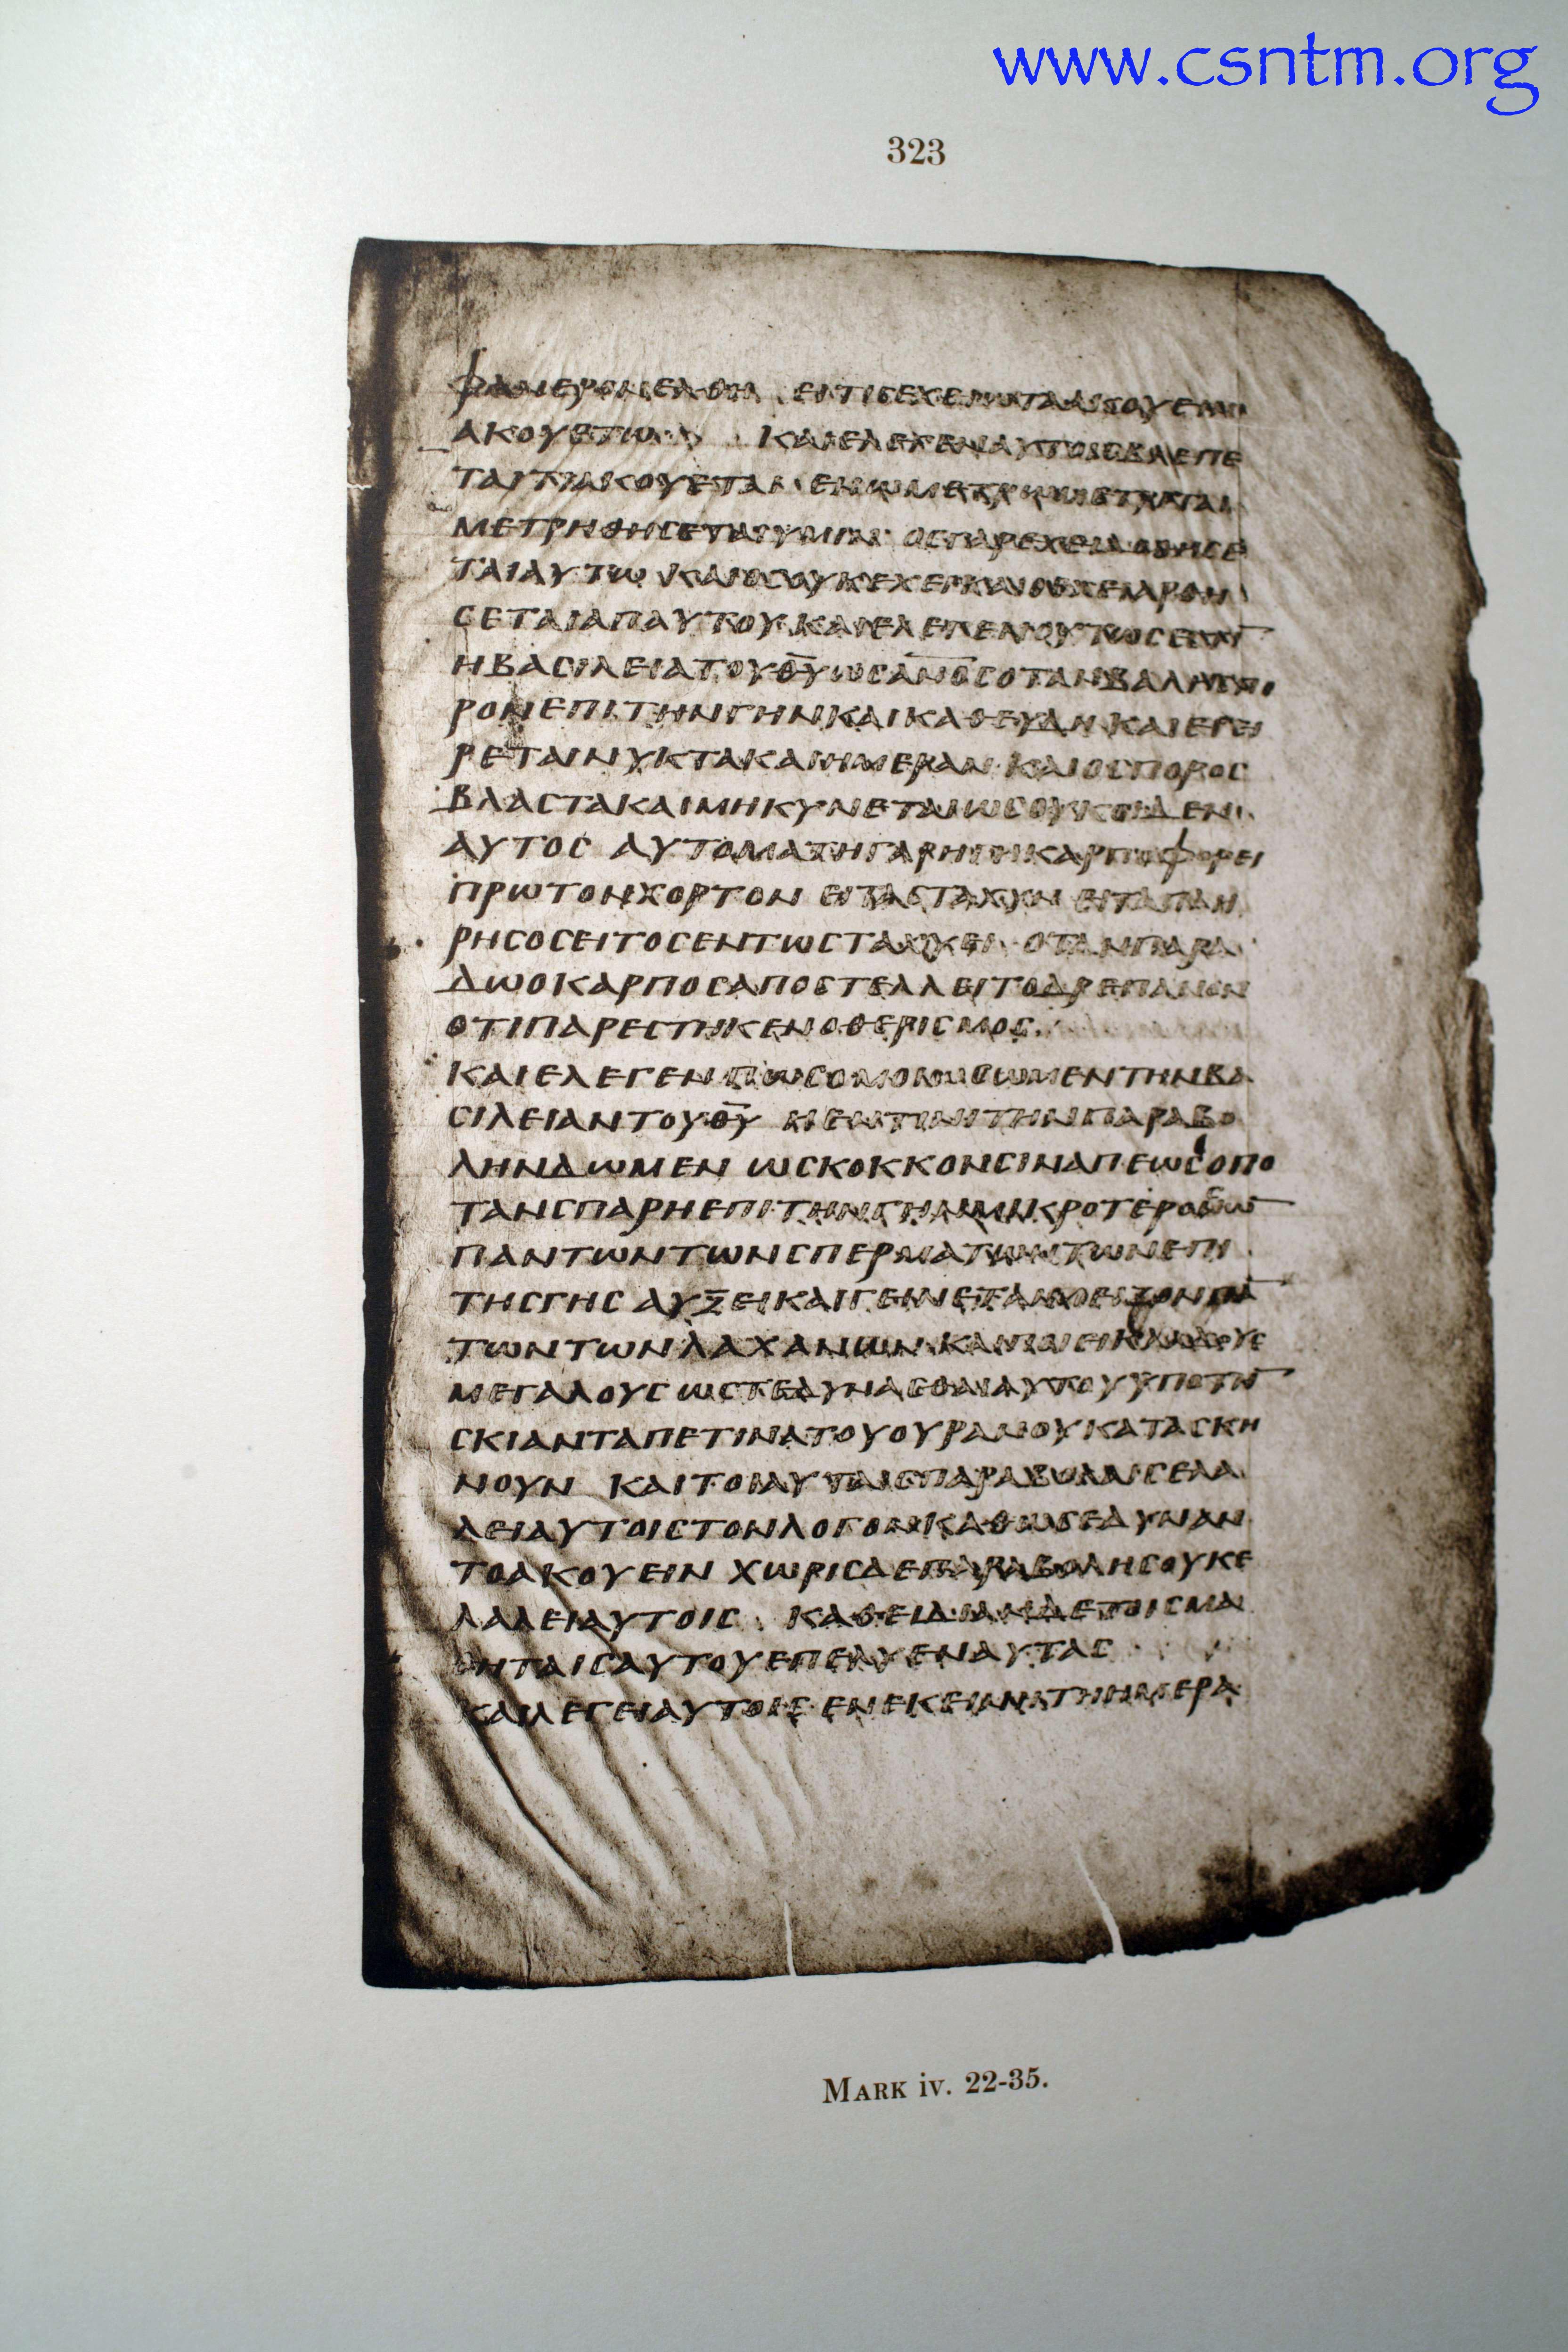 www.csntm.org
323
ΦΑΝΕΡΟΝΕΛΘΗ ΕΙΤΙCΕΧΕΙ
ΑΚΟΥΕΤω ΚΑΙΕΛΕΓΕΝΑΥΤΟΙC
ΜΕΤΡΗΘΗCΕΤΑΙΥΜΙΝ
ΤΑΙΑΥΤω ΚΑΙΟCΟΥΚΕΧΕΙ
CΕΤΑΙΑΠΑΥΤΟΥ ΚΑΙΕΛΕΓΕΝΟΥΤωC
ΗΒΑCΙΛΕΙΑΤΟΥΘΥωCΑΝΟCΟΤΑΝΒΑΛΗ
ΡΟΝΕΠΙΤΗΝΓΗΝΚΑΙΚΑΘΕΥΔΗ ΚΑΙΕΓΕΙ
ΡΕΤΑΙΝΥΚΤΑΚΑΙΗΜΕΡΑΝ ΚΑΙΟCΠΟΡΟC
ΒΛΑCΤΑΚΑΙΜΗΚΥΝΕΤΑΙωCΟΥΚΟΙΔΕΝ
ΑΥΤΟC ΑΥΤΟΜΑΤΗΓΑΡΗΓΗΚΑΡΠΟΦΟΡΕΙ
ΠΡωΤΟΝΧΟΡΤΟΝ ΕΙΤΑCΤΑΧΥΝ ΕΙΤΑΠΛΗ
ΡΗCΟCΕΙΤΟCΕΝΤωCΤΑΧΥΕΙ ΟΤΑΝΠΑΡΑ
ΔωΟΚΑΡΠΟCΑΠΟCΤΕΛΛΕΙΤΟΔΡΕΠΑΝΟΝ
ΟΤΙΠΑΡΕCΤΗΚΕΝΟΘΕΡΙCΜΟC
ΚΑΙΕΛΕΓΕΝΠωCΟΜΟΙωCωΜΕΝΤΗΝΒΑ
CΙΛΕΙΑΝΤΟΥΘΥ ΗΕΝΤΙΝΙΤΗΝΠΑΡΑΒΟ
ΛΗΝΔωΜΕΝ ωCΚΟΚΚΟΝCΙΝΑΠΕωCΟΠΟ
ΤΑΝCΠΑΡΗΕΠΙΤΗΝΓΗΝΜΙΚΡΟΤΕΡΟ
ΠΑΝΤωΝΤωΝCΠΕΡΜΑΤωΝΤωΝΕΠΙ
ΤΗCΓΗC ΑΥΞΕΙΚΑΙΓΕΙΝΕΤΑΙ
ΤωΝΤωΝΛΑΧΑΝωΝ ΚΑΙΠΟΙΕΙΚΛΑΔΟΥC
ΜΕΓΑΛΟΥC ωCΤΕΔΥΝΑCΘΑΙΑΥΤΟΥΥΠΟΤΗ
CΚΙΑΝΤΑΠΕΤΙΝΑΤΟΥΟΥΡΑΝΟΥΚΑΤΑCΚΗ
ΝΟΥΝ ΚΑΙΤΟΙΑΥΤΑΙCΠΑΡΑΒΟΛΑΙCΕΛΑ
ΛΕΙΑΥΤΟΙCΤΟΝΛΟΓΟΝΚΑΘωCΕΔΥΝΑΝ
ΤΟΑΚΟΥΕΙΝ ΧωΡΙCΔΕΠΑΡΑΒΟΛΗCΟΥΚΕ
ΛΑΛΕΙΑΥΤΟΙC ΚΑΘΕΙΔΙΑΝΔΕΤΟΙCΜΑ
ΘΗΤΑΙCΑΥΤΟΥΕΠΕΛΥΕΝΑΥΤΑC
ΚΑΙΛΕΓΕΙΑΥΤΟΙC ΕΝΕΚΕΙΝΗΤΗΗΜΕΡΑ
MARK iv. 22-35.